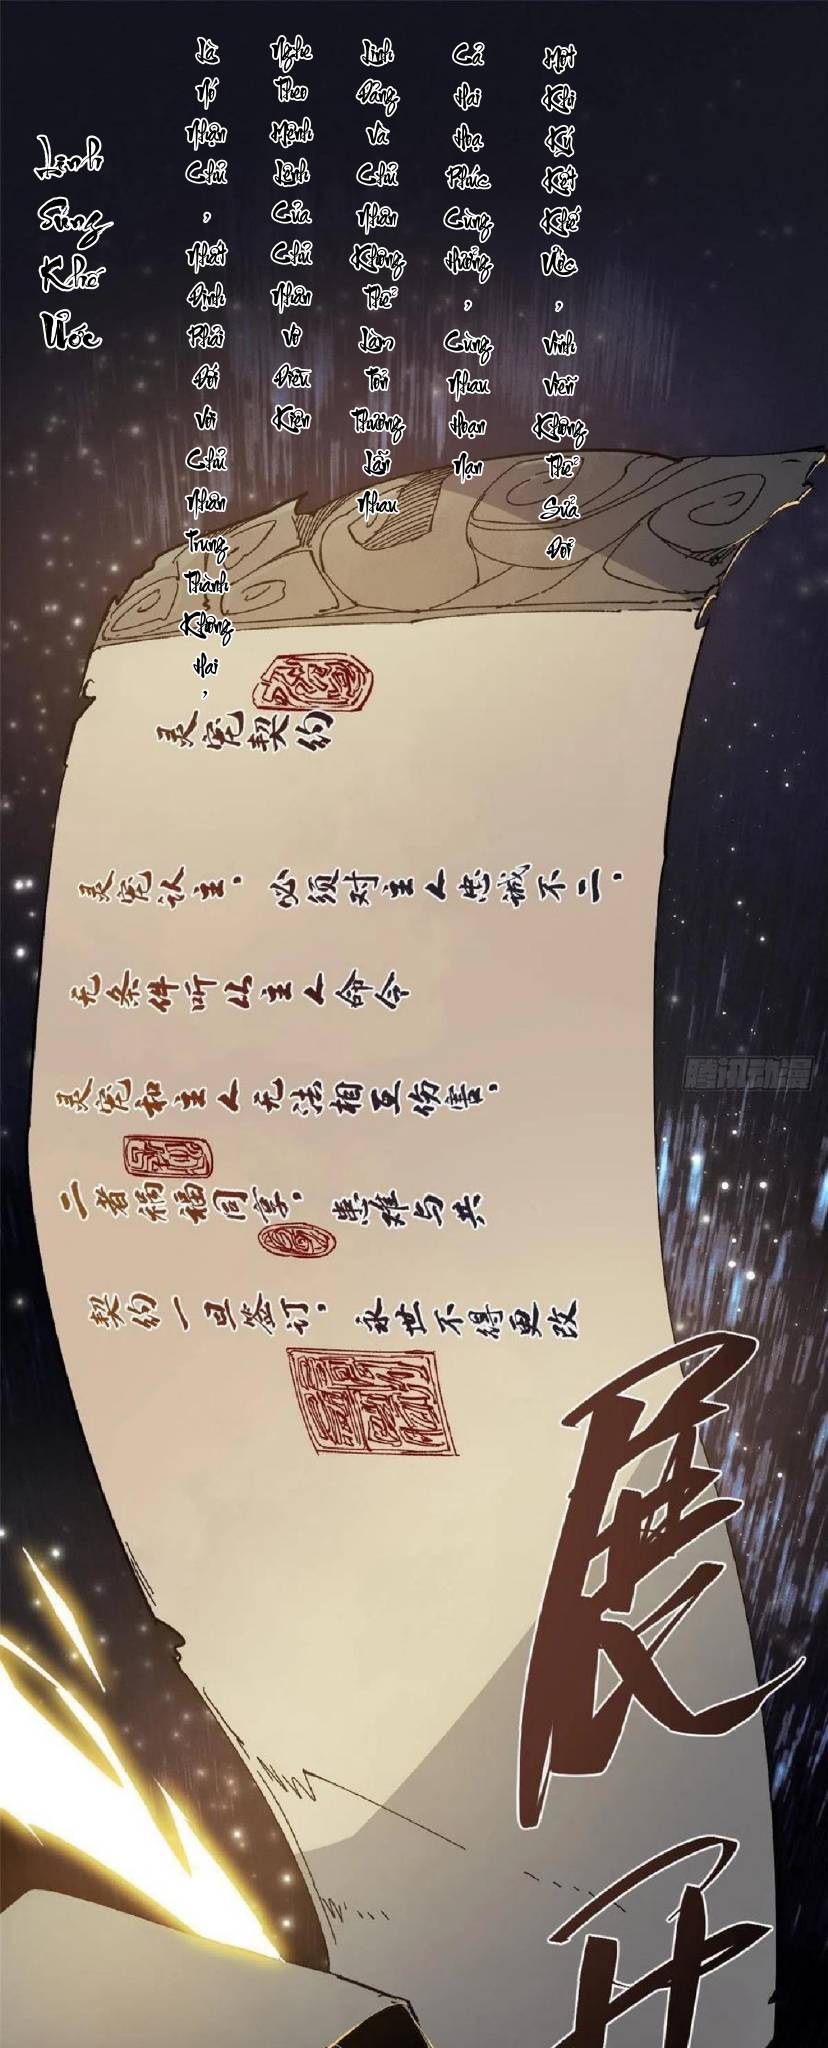 Linh Sủng Khế Ước
Là Nô Nhận Chủ, Nhất Định Phải Đối Với Chủ Nhân Trung Thành Không Hai,
Nghe Theo Mệnh Lệnh Của Chủ Nhân Vô Điều Kiện
Linh Đáng Và Chủ Nhân Không Thể Làm Tổn Thương Lẫn Nhau
Cả Hai Hoạ Phúc Cùng Hưởng, Cùng Nhau Hoạn Nạn
Một Khi Ký Kết Khế Ước, Vĩnh Viễn Không Thể Sửa Đổi
灵宠契约
灵宠认主，必须对主人忠诚不二，
无条件听从主人命令
灵宠和主人无法相互伤害，
二者祸福同享，患难与共
契约一旦签订，永世不得更改
腾讯动漫
展
开